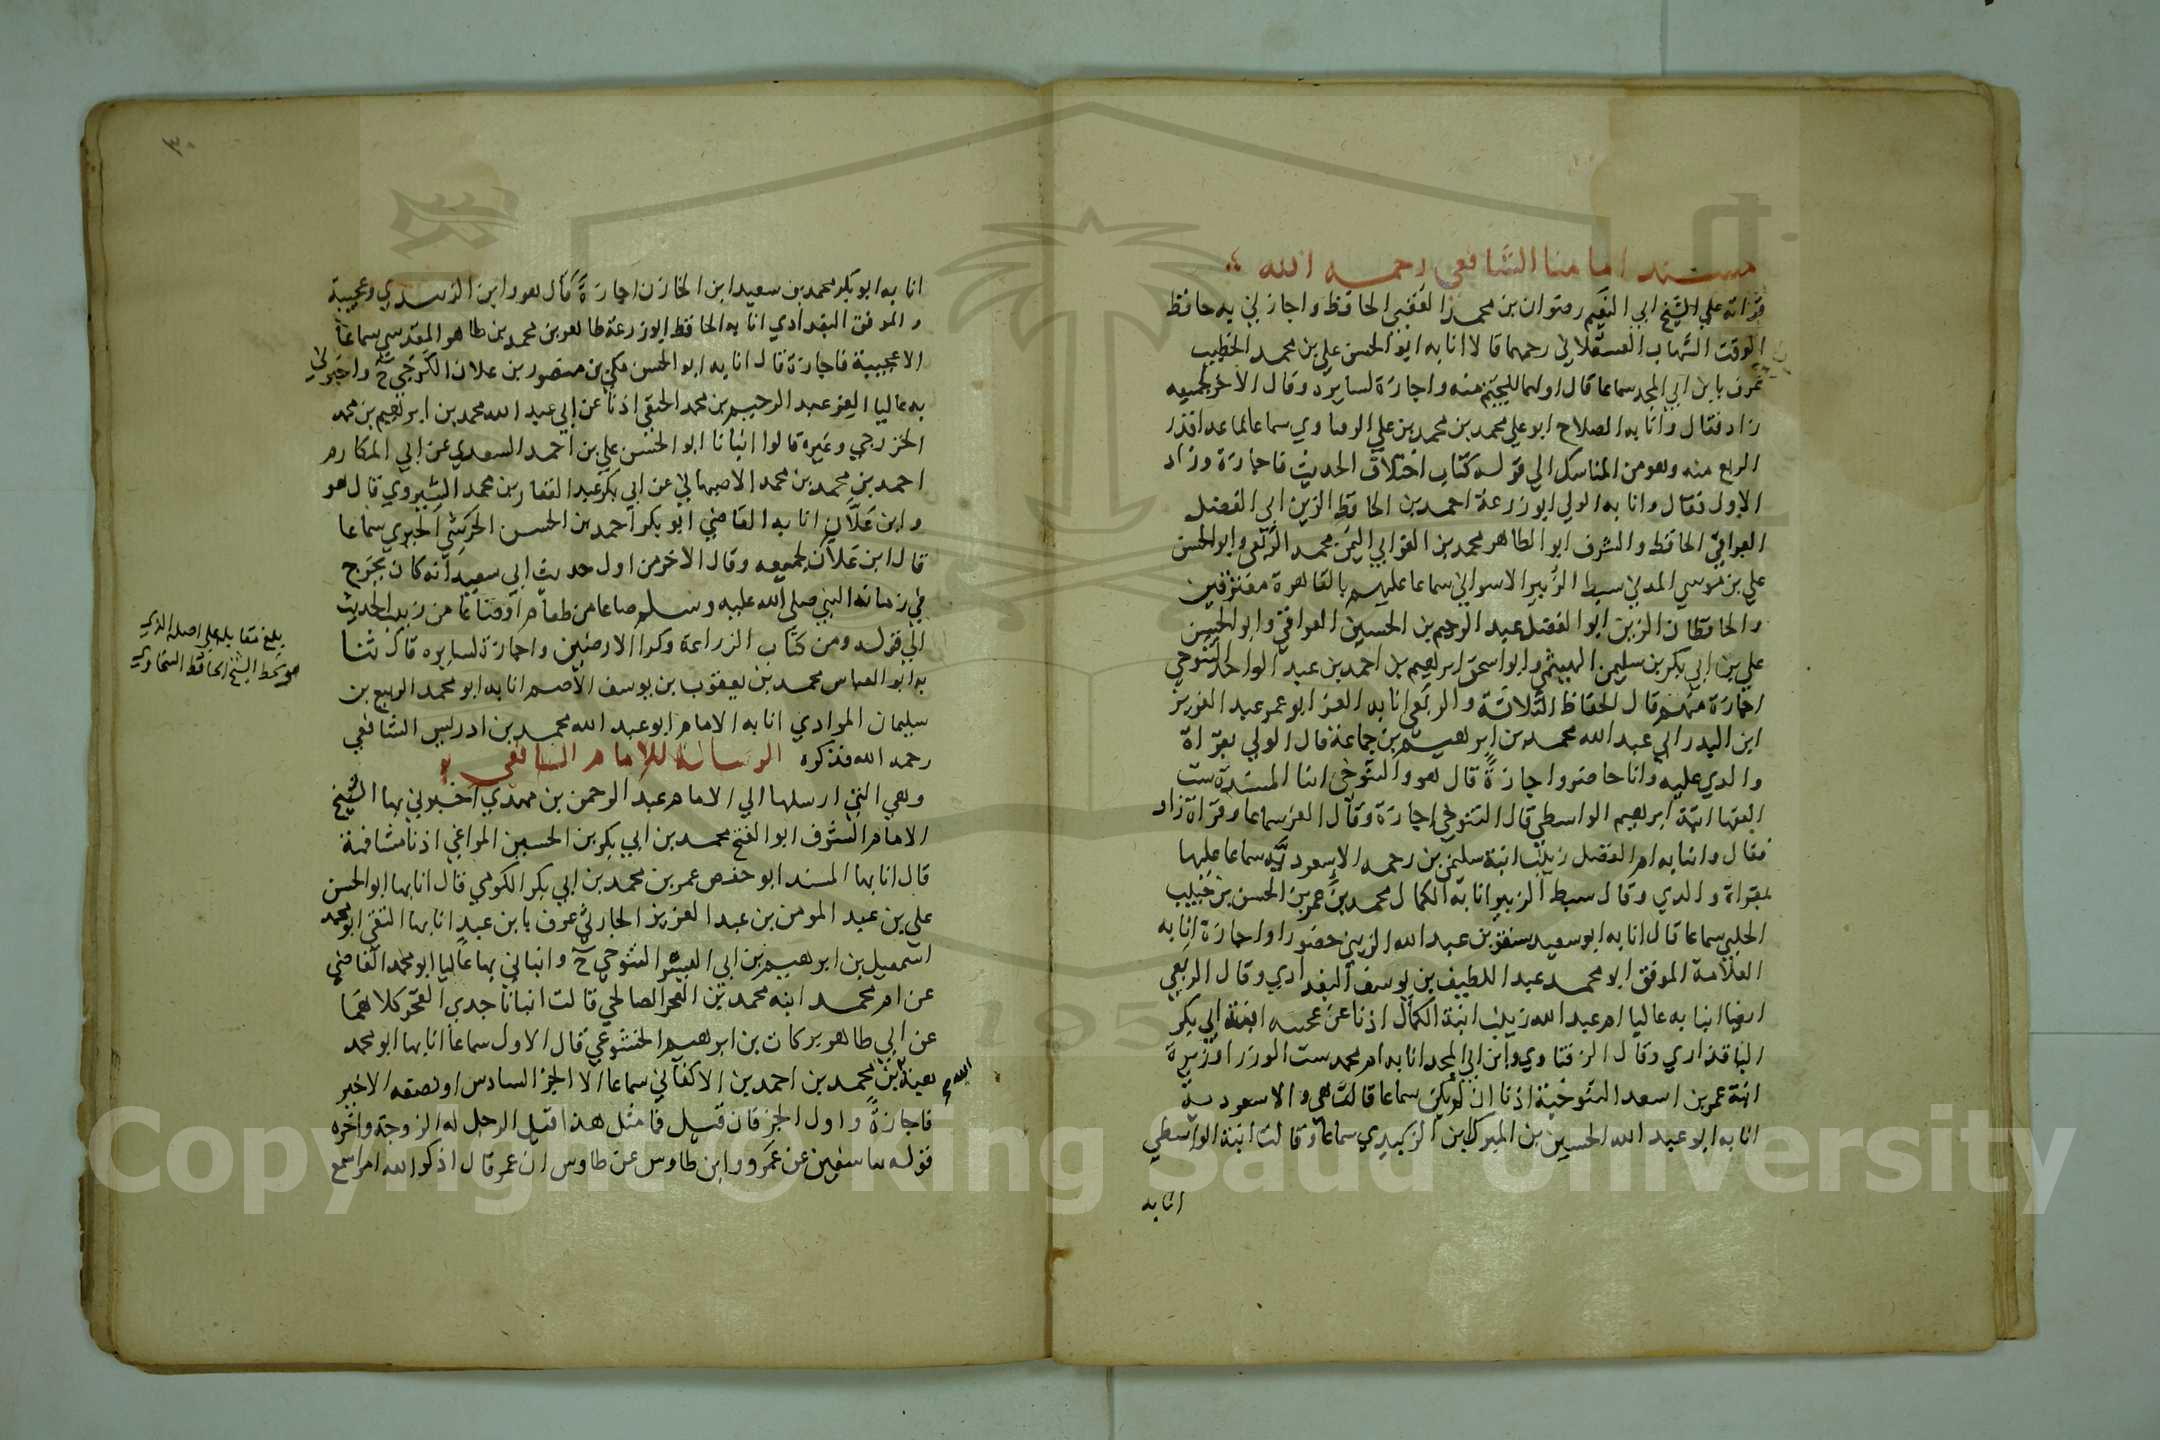 مسند امامنا الشافعي رحمه الله
قراته علي الشيخ ابي النعيم رضوان بن محمد العقبي الحافظ واجازني به حافظ
الوقت الشهاب العسقلاني رحمهما قالا انا به ابو الحسن علي بن محمد الخطيب
عرف بابن ابي المجد سماعا قال اولهما لليجيم منه واجازة لسايره وقال الاخر لجميعه
زاد فقال وانا به الصلاح ابو علي محمد بن محمد بن علي الزفتاوي سماعا لما عدا قدر
الربع منه وهو من المناسك الي قوله كتاب اختلاف الحديث فاجازة وزاد
الاول فقال وانا به الولي ابو زرعة احمد بن الحافظ الزين ابي الفضل
العراقي الحافظ والشرف ابو الطاهر محمد بن العز ابي اليمن محمد الربعي وابو الحسن
علي بن موسي المدني سبط الزبير الاسواني سماعا عليهم بالقاهرة مفترقين
والحافظان الزين ابو الفضل عبد الرحيم بن الحسين العراقي وابو الحسن
علي بن ابي بكر بن سليمن الهيثمي وابو اسحق ابرهيم بن احمد بن عبد الواحد التنوخي
اجازة منهم قال الحفاظ الثلاثة والربعي انا به العز ابو عمر عبد العزيز
ابن البدر ابي عبد الله محمد بن ابرهيم بن جماعة قال الولي بقراة
والدي عليه وانا حاضر واجازة قال هو والتنوخي انا المسندة ست
الفقها ابنة ابرهيم الواسطي قال التنوخي اجازة وقال العز سماعا وقراة زاد
فقال وانا به ام الفضل زينب ابنة سليمن بن رحمه الاسعردية سماعا عليها
بقراة والدي وقال سبط الزبير انا به الكمال محمد بن عمر بن الحسن بن حبيب
الحلبي سماعا قال انا به ابو سعيد سنقر بن عبد الله الزيني حضورا واجازة انا به
العلامة الموفق ابو محمد عبد اللطيف بن يوسف البغدادي وقال الربعي
ايضا انبا به عاليا ام عبد الله زينب ابنة الكمال اذنا عن عجيبه ابنة ابي بكر
الباقداري وقال الزفتاوي وابن ابي المجد انا به ام محمد ست الوزرا وزيرة
ابنة عمر بن اسعد التنوخية اذنا ان لم يكن سماعا قالت هي والاسعردية
انا به ابو عبد الله الحسين بن المبرك بن الزبيدي سماعا وقالت ابنة الواسطي
انا به
انا به ابو بكر محمد بن سعيد ابن الخازن اجازة قال هو وابن الزبيدي وعجيبة
والموفق البغدادي انا به الحافظ ابو زرعة طاهر بن محمد بن طاهر المقدسي سماعا
الا عجيبة فاجازة قال انا به ابو الحسن مكي بن منصور بن علان الكرجي ح واخبرني
به عاليا العز عبد الرحيم بن محمد الحنفي اذنا عن ابي عبد الله محمد بن ابرهيم بن محمد
الخزرجي وغيره قالوا انبانا ابو الحسن علي بن احمد السعدي عن ابي المكارم
احمد بن محمد بن محمد الاصبهاني عن ابي بكر عبد الغفار بن محمد الشيروي قال هو
وابن علان انا به القاضي ابو بكر احمد بن الحسن الحرشي الحيري سماعا
قال ابن علان لجميعه وقال الاخر من اول حديث ابي سعيد انه كان يخرج
في زمانه النبي صلي الله عليه وسلم صاعا من طعام او صاعا من زبيب الحديث
الي قوله ومن كتاب الزراعة وكرا الارضين واجازة لسايره قال ثنا
به ابو العباس محمد بن يعقوب بن يوسف الاصم انا به ابو محمد الربيع بن
سليمان المرادي انا به الامام ابو عبد الله محمد بن ادريس الشافعي
رحمه الله فذكره الرسالة للامام الشافعي
وهي التي ارسلها الي الامام عبد الرحمن بن مهدي اخبرني بها الشيخ
الامام الشرف ابو الفتح محمد بن ابي بكر بن الحسين المراغي اذنا مشافهة
قال انا بها المسند ابو حفص عمر بن محمد بن ابي بكر الكومي قال انا بها ابو الحسن
علي بن عبد المومن بن عبد العزيز الحارثي عرف بابن عبد انا بها التقي ابو محمد
اسمعيل بن ابرهيم بن ابي اليسر التنوخي ح وانباني بها عاليا ابو محمد القاضي
عن ام محمد ابنه محمد بن الفخر الصالحي قالت انبانا جدي الفخر كلاهما
عن ابي طاهر بركات بن ابرهيم الخشوعي قال الاول سماعا انا بها ابو محمد
هبة الله بن محمد بن احمد بن الاكفاني سماعا الا الجز السادس او نصفه الاخير
فاجازة واول الجز فان قيل فما مثل هذا قيل الرجل له الزوجة واخره
قوله سا سفين عن عمرو وابن طاوس عن طاوس ان عمر قال اذكر الله امرا سمع
بلغ مقابلة علي اصله الذي
هو بخط الشيخ الحافظ السخاوي
٣٠
Copyright © King Saud University
1957